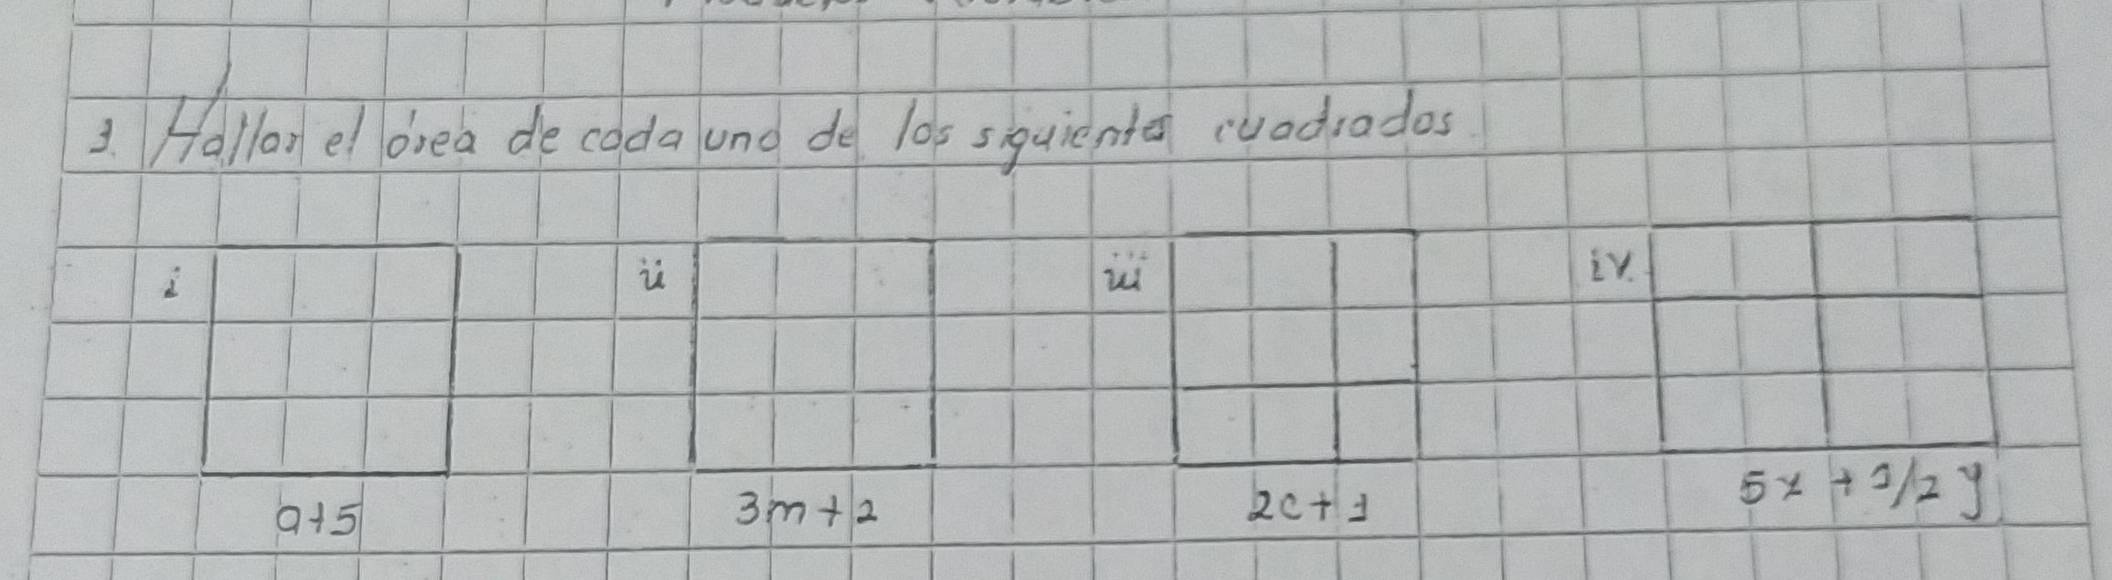 1. Hallar el área de cada uno de los siguientes cuadrados
i ii iii iv.
a+5 3m+2 2c+1 5x+1/2 y